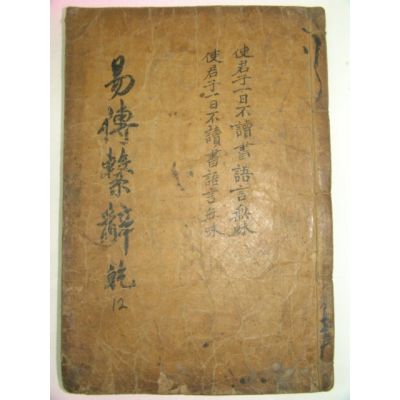 使君子一日不讀書語言無味
使君子一日不讀書語言無味
易傳繫辭 乾
12